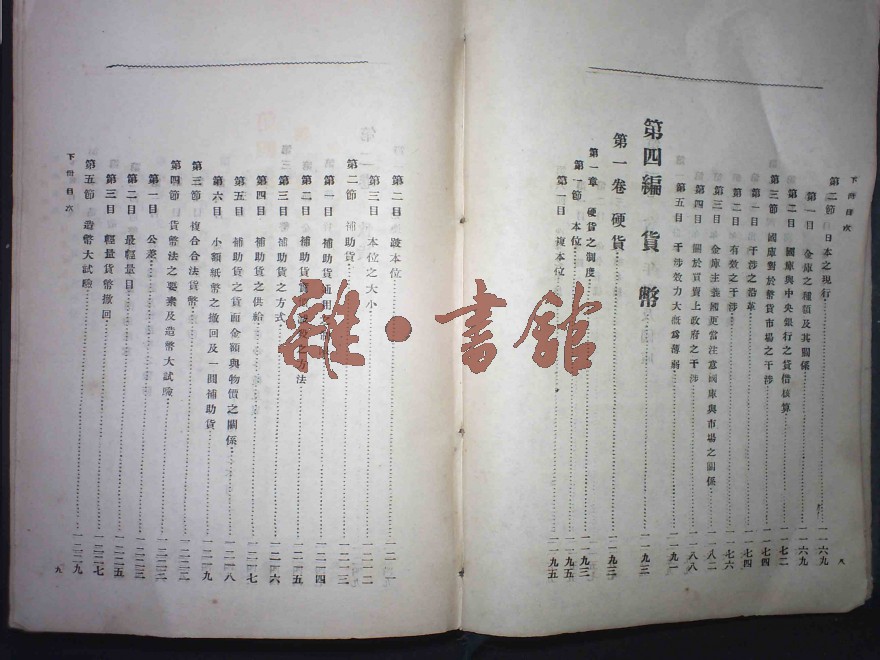 下冊目次
第二節 日本之現行……一六九
第一目 金庫之種類及其關係……一六九
第二目 國庫與中央銀行之貸借核算……一七二
第三節 國庫對於幣貨市場之干涉……一七四
第一目 干涉之沿革……一七四
第二目 有效之干涉……一七六
第三目 金庫主義國更當注意國庫與市場之關係……一八二
第四目 關於買賣上政府之干涉……一八八
第五目 干涉效力大概為薄弱……一九一
第四編 貨幣……一九三
第一卷 硬貨……一九三
第一章 硬貨之制度……一九三
第一節 本位……一九五
第一目 複本位……一九五
八
第二目 跛本位……二一一
第三目 本位之大小……二一二
第二節 補助貨……二一三
第一目 補助貨通用……二一四
第二目 補助貨……之方法……二一五
第三目 補助貨之方式……二一六
第四目 補助貨之供給……二一七
第五目 補助貨之貨面金額與物價之關係……二一八
第六目 小額紙幣之撤回及一圓補助貨……二一九
第三節 複合合法貨幣……二二二
第四節 貨幣法之要素及造幣大試驗……二二三
第一目 公差……二二三
第二目 最輕量目……二二五
第三目 輕量貨幣撤回……二二七
第五節 造幣大試驗……二二九
下冊目次
九
雜·書館